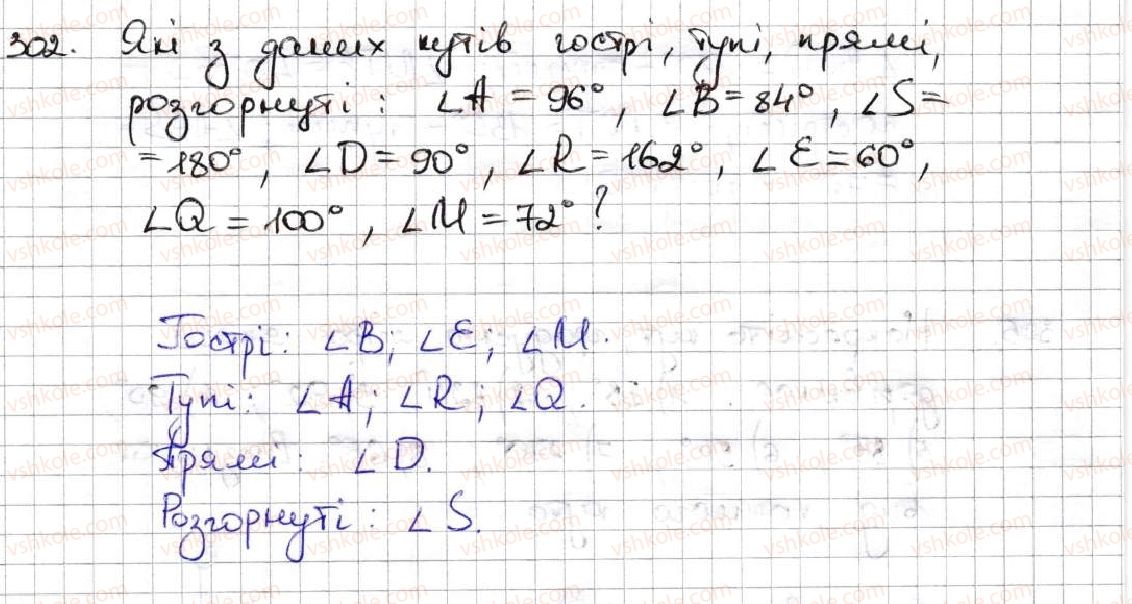 302. Які з даних кутів гострі, тупі, прямі,
розгорнуті: ∠A = 96°, ∠B = 84°, ∠S =
= 180°, ∠D = 90°, ∠R = 162°, ∠E = 60°,
∠Q = 100°, ∠M = 72°?
Гострі: ∠B; ∠E; ∠M.
Тупі: ∠A; ∠R; ∠Q.
Прямі: ∠D.
Розгорнуті: ∠S.